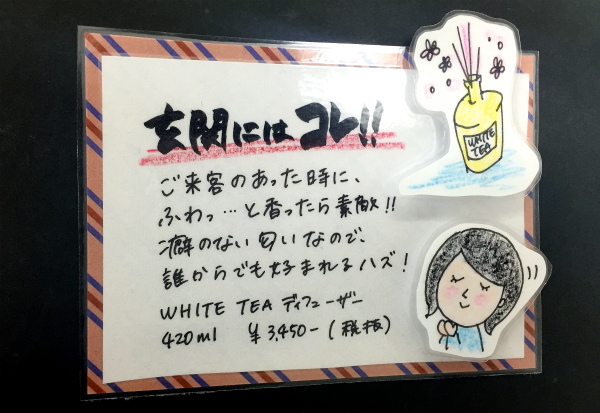 玄関にはコレ!!
ご来客のあった時に、
ふわっ…と香ったら素敵!!
癖のない匂いなので、
誰からでも好まれるハズ!
WHITE TEA ディフューザー
420ml ¥3,450-(税抜)
WHITE
TEA